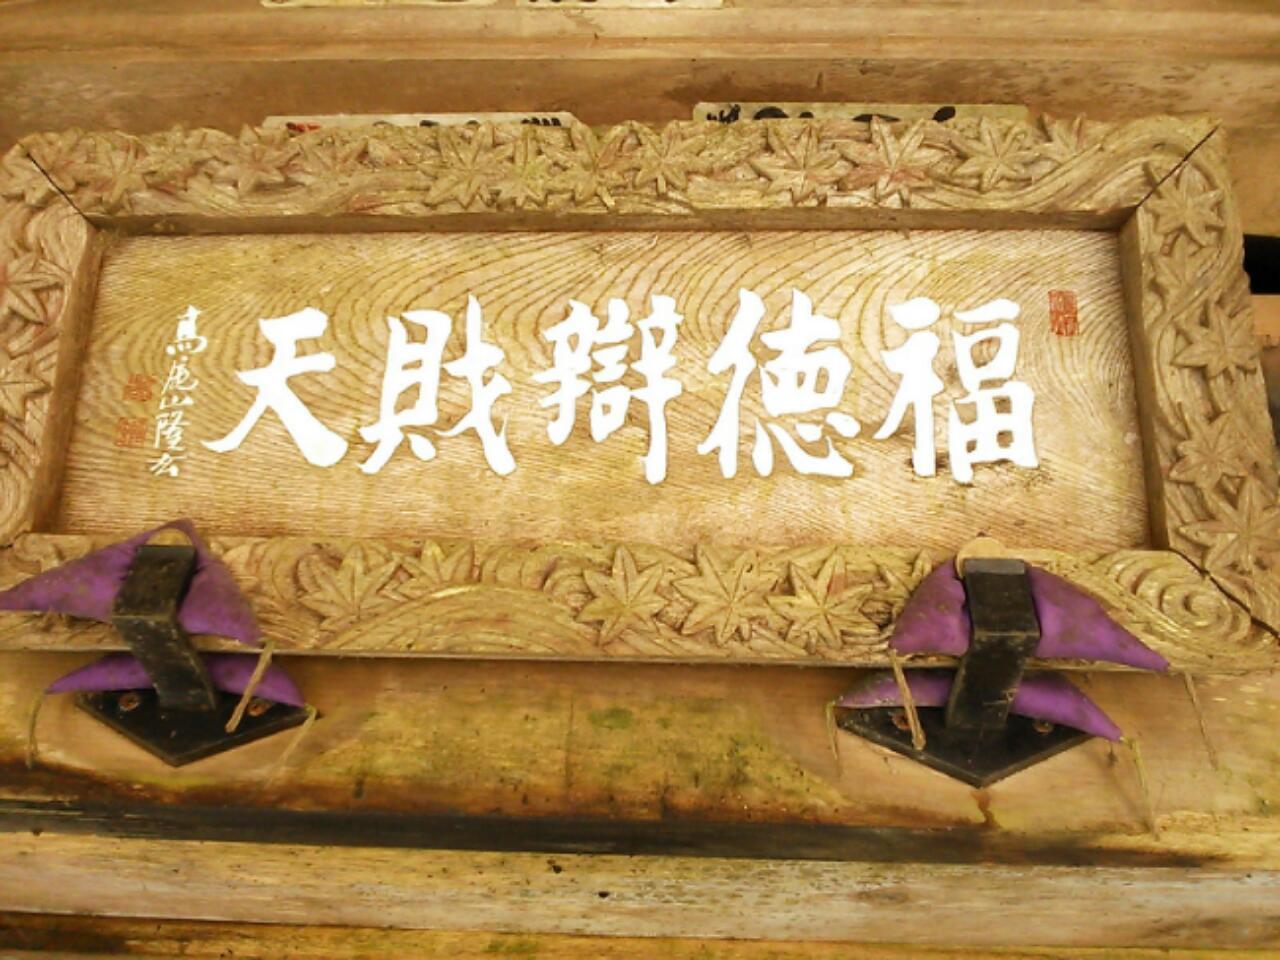 福徳辯財天
高尾山隆玄